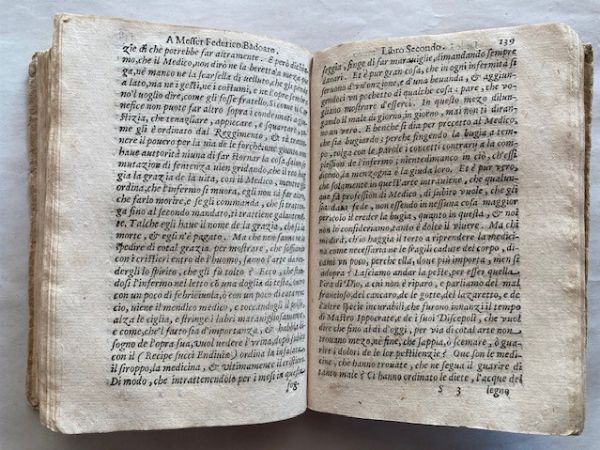 A Messer Federico Badoaro.
zie di chè potrebbe far altramente. E però dichia-
mo, che il Medico, non dirò ne la beretta a meza pie
ga, nè manco ne la scarsella di ueluto, che gli pende
a lato, ma ne i gesti, ne i costumi, e ne l'opre sue
uoglio dire, come gli fosse fratello, Si come il car-
nefice non puote far altro sopra i condennati da la giu
stizia, che tenagliare, appiccare, e squartare, co-
me gli è ordinato dal Reggimento, & sà tratte-
nere il pouero per la via de le forche
haue autorità niuna di far stornar la cosa, se in
mutazion di sentenza uien gridando, che il reo hab-
bia la grazia de la uita, così il Medico, mentre gli
ordina, che l'infermo si muora, egli non tà far altro,
che farlo morire, e se gli commanda, che si trattien
ga fino al secondo mandato, ti trattiene galantemen-
te. Talche egli haue il nome de la grazia, che sà la
morte, & egli n'è pagato. Ma che non fanno ne lo
spedire di cotal grazia per mostrare, che soffiando
con i cristieri entro de l'huomo, sanno l'arte di ren-
dergli lo spirito, che gli fù tolto? Ecco, che stan-
dosi l'infermo nel letto cō una doglia di testa,
con un poco di febriciuola, ò con un poco di catar-
ro, uiene il medico medico, e toccandogli il polso,
alza le ciglia, e stringe i labri marauigliosamente,
e come, che'l fatto sia d'importanza, & habbia bi-
sogno de l'opra sua, vuol uedere l'vrina, dopo subito
con il (Recipe succi Endiuiæ) ordina la insalata,
il siroppo, la medicina, & ultimamente il cristiero.
Di modo, che intrattenendolo per i mesi in questa
fog-
Libro Secondo. 139
foggia, finge di far marauiglie, dimandando sempre
danari. Et è pur gran cosa, che in ogni infermità si
seruono d'vn'onzione, e d'una beuanda, & aggiun-
gendoci un pochetto di qualche cosa: pare, che vo-
gliano mostrare d'esserci. In questo mezo dilun-
gando il male di giorno, in giorno, mai non ti diran-
no un vero. E benche sia per precetto al Medico,
che sia bugiardo; perche fingendo la bugia a tem-
po, tolga con le parole i concetti contrarij a la com-
plession de l'infermo; nientedimanco in ciò, ch'essi
dicono, la menzogna è la giuda loro. Et è pur vero,
che solamente in quest'arte intrauiene, che qualun-
que fà profession di Medico, di subito vuole, che gli
sia data fede, non essendo in nessuna cosa maggior
pericolo il creder la bugia, quanto in questa, & noi
non lo consideriamo, tanto è dolce il viuere. Ma chi
mi dirà, ch'io haggia il torto a riprendere la medici-
na come necessaria ne le fragili cadute del corpo, di-
cami vn poco, perche ella, doue più importa, men si
adopra? Lasciamo andar la peste, per esser quella
l'ira di Dio, a chi non è riparo, e parliamo del mal
francioso, del cancaro, de le gotte, del lazaretto, e de
l'altre specie incurabili, che furono innanzi il tempo
di Mastro Ippocrate, e de i suoi Discepoli, che vuol
dire che fino al dì d'oggi, per via di cotal arte non
trouano mezo, nè fine, che sappia, ò scemare, ò gua-
rire i dolori de le lor pestilenzie? Que son le medi-
cine, che hanno trouate, che ne segua il guarire di
tanto male? Ci hanno ordinato le diete, l'acque del
S 3 legno